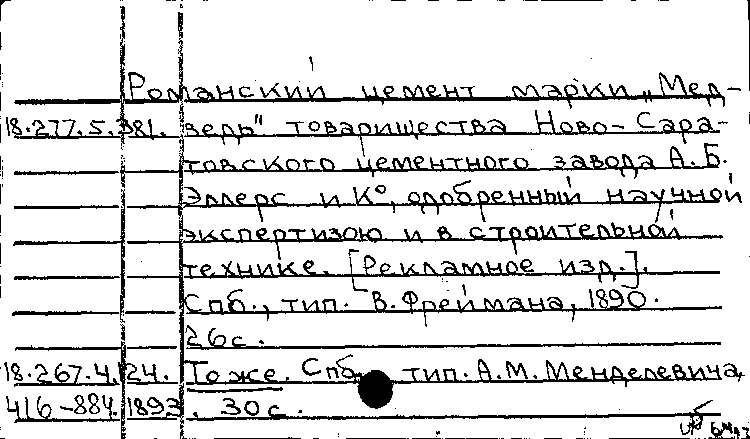 Романский цемент марки „Мед-
18.277.5.381. ведь" товарищества Ново-Сара-
товского цементного завода А. Б.
Эллерс и К°, одобренный научной
экспертизою и в строительной
технике. [Рекламное изд.].
Спб., тип. В. Фреймана, 1890.
26с.
18.267.4.124. То же. Спб., тип. А.М. Менделевича,
416-884. 1893. 30с.